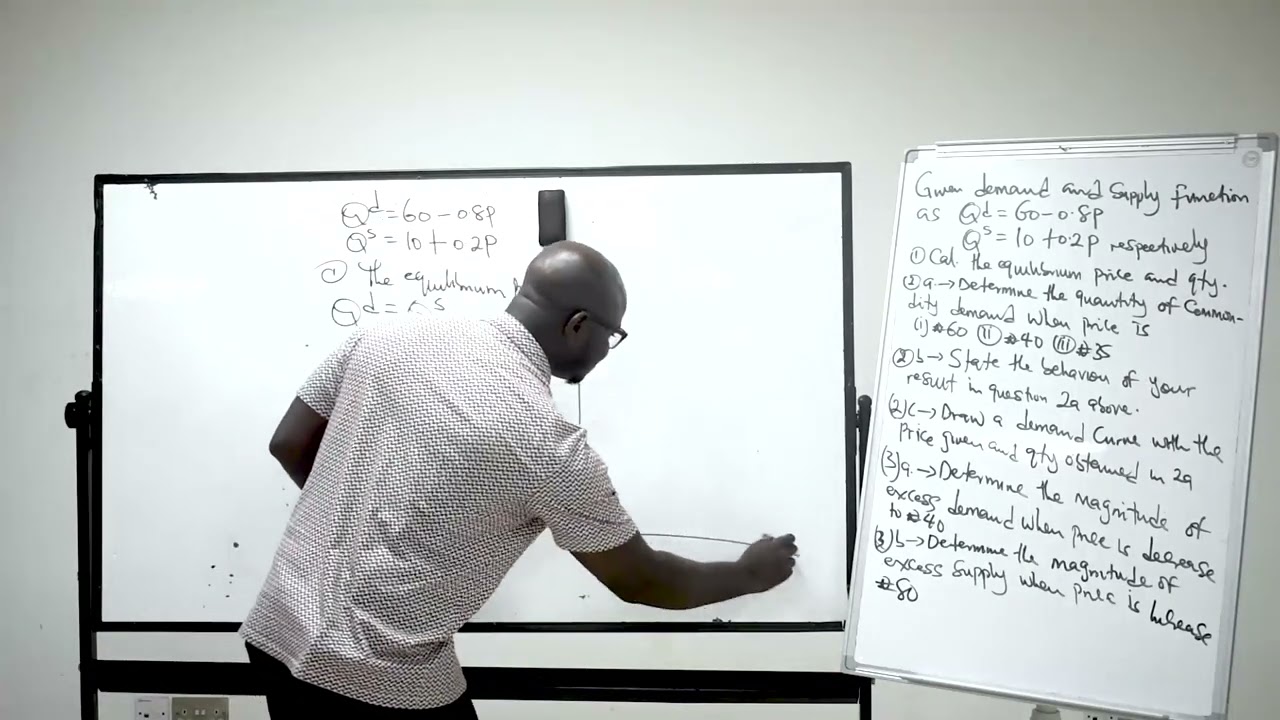 Qd = 60 - 0.8P
Qs = 10 + 0.2P
① The equilibrium
Qd = Qs
Given demand and Supply function
as Qd = 60 - 0.8P
Qs = 10 + 0.2P respectively
① Cal. the equilibrium price and qty.
② a. → Determine the quantity of Commo-
dity demand when price is
(i) ₦60 (ii) ₦40 (iii) ₦35
② b → State the behaviour of your
result in question 2a above.
(2)c → Draw a demand Curve with the
Price given and qty obtained in 2a
(3)a. → Determine the magnitude of
excess demand when price is decrease
to ₦40
(3)b → Determine the magnitude of
excess Supply when price is Increase
₦80